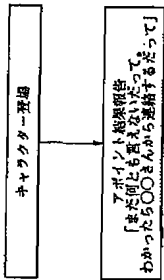 キャラクター登場
アポイント結果報告
「まだ何とも言えないだって。
わかったら○○さんから連絡するだって」